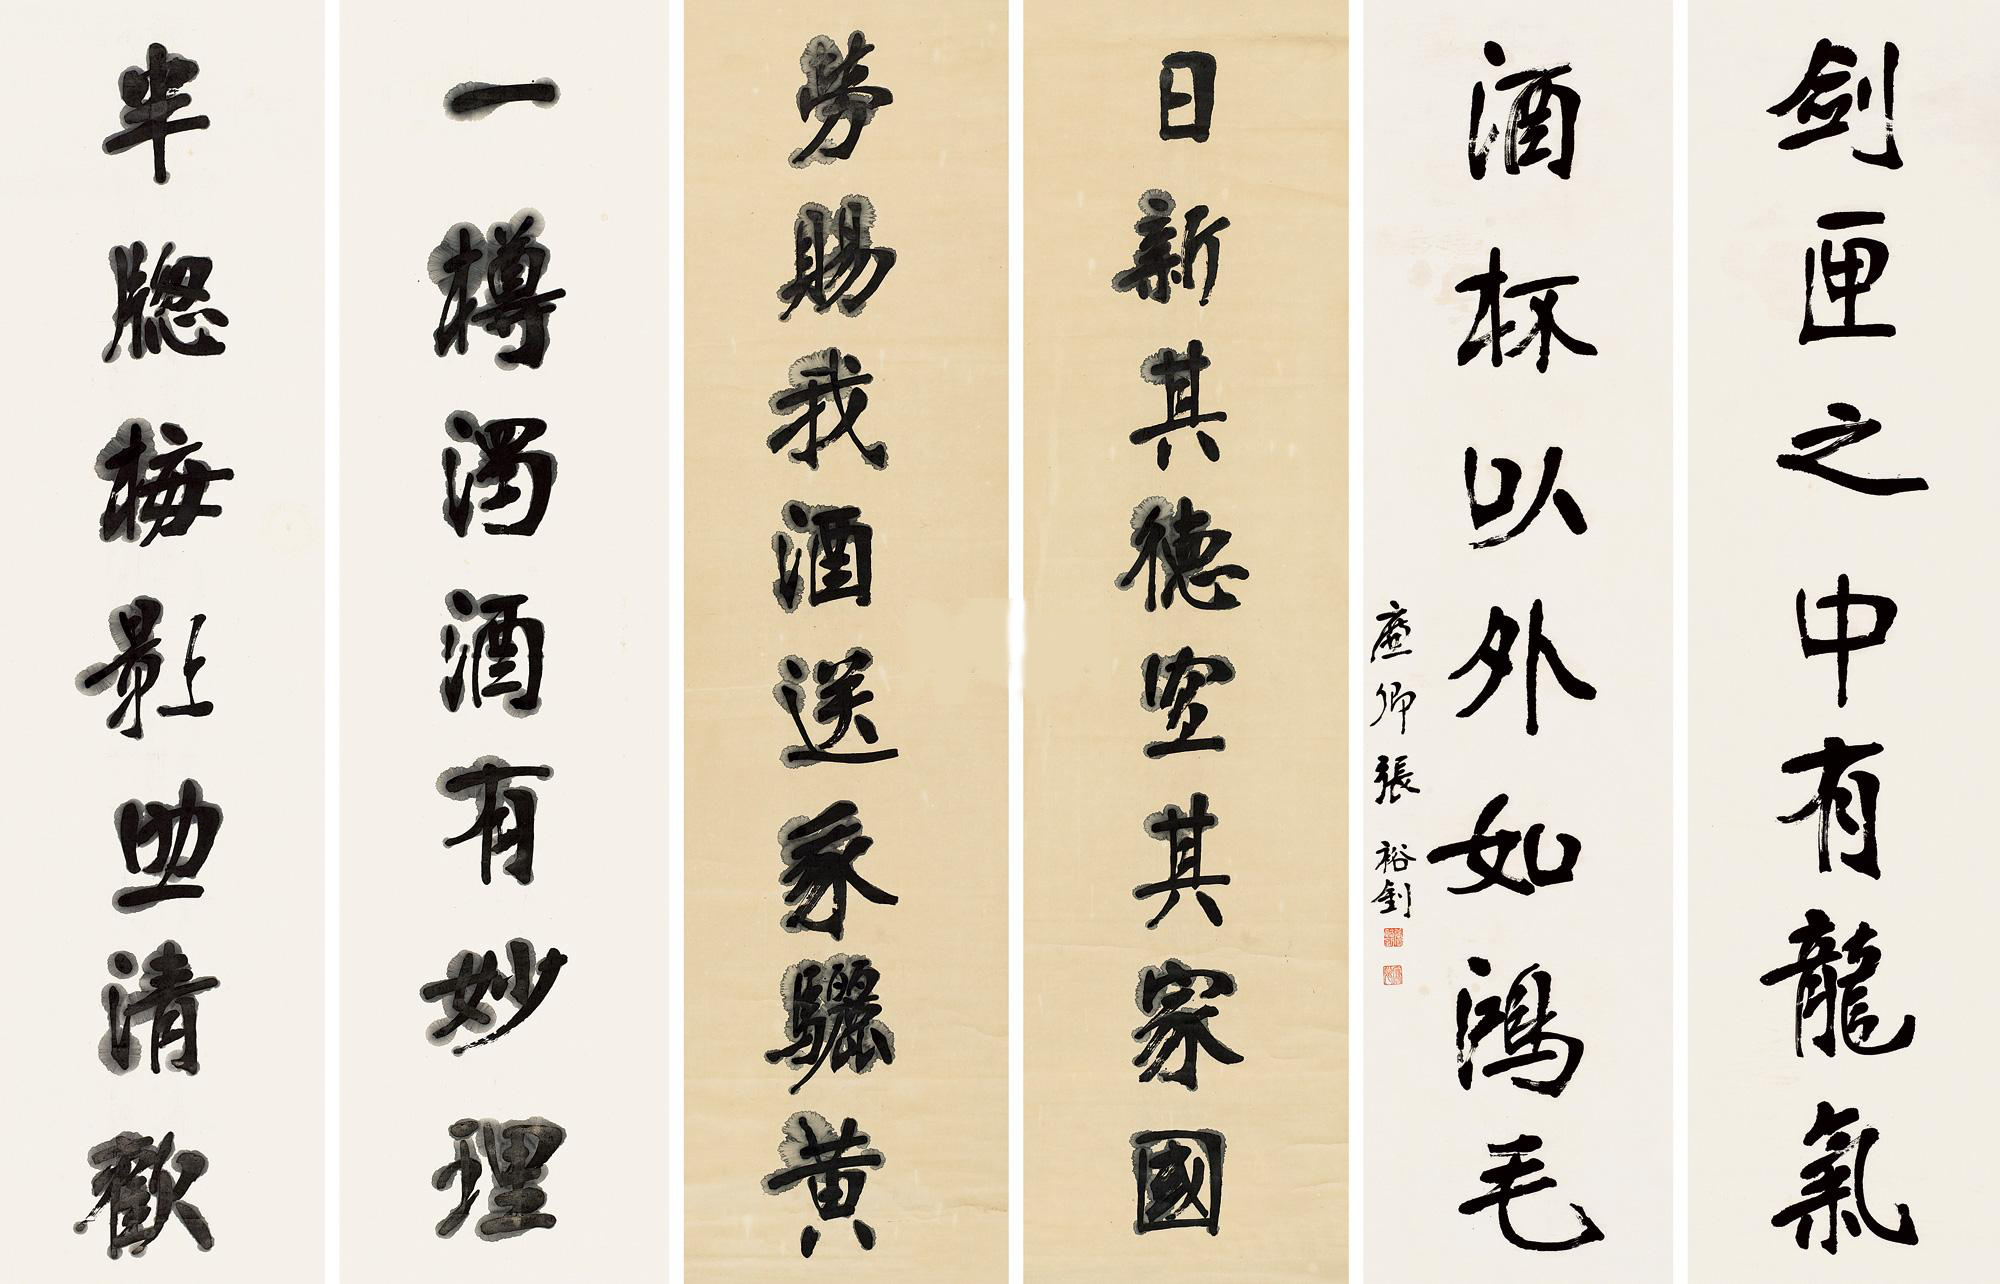 剑匣之中有龍氣
酒杯以外如鴻毛
廉卿張裕釗
日新其德空其家國
勞賜我酒送豕驪黄
一樽濁酒有妙理
半牕梅影助清歡